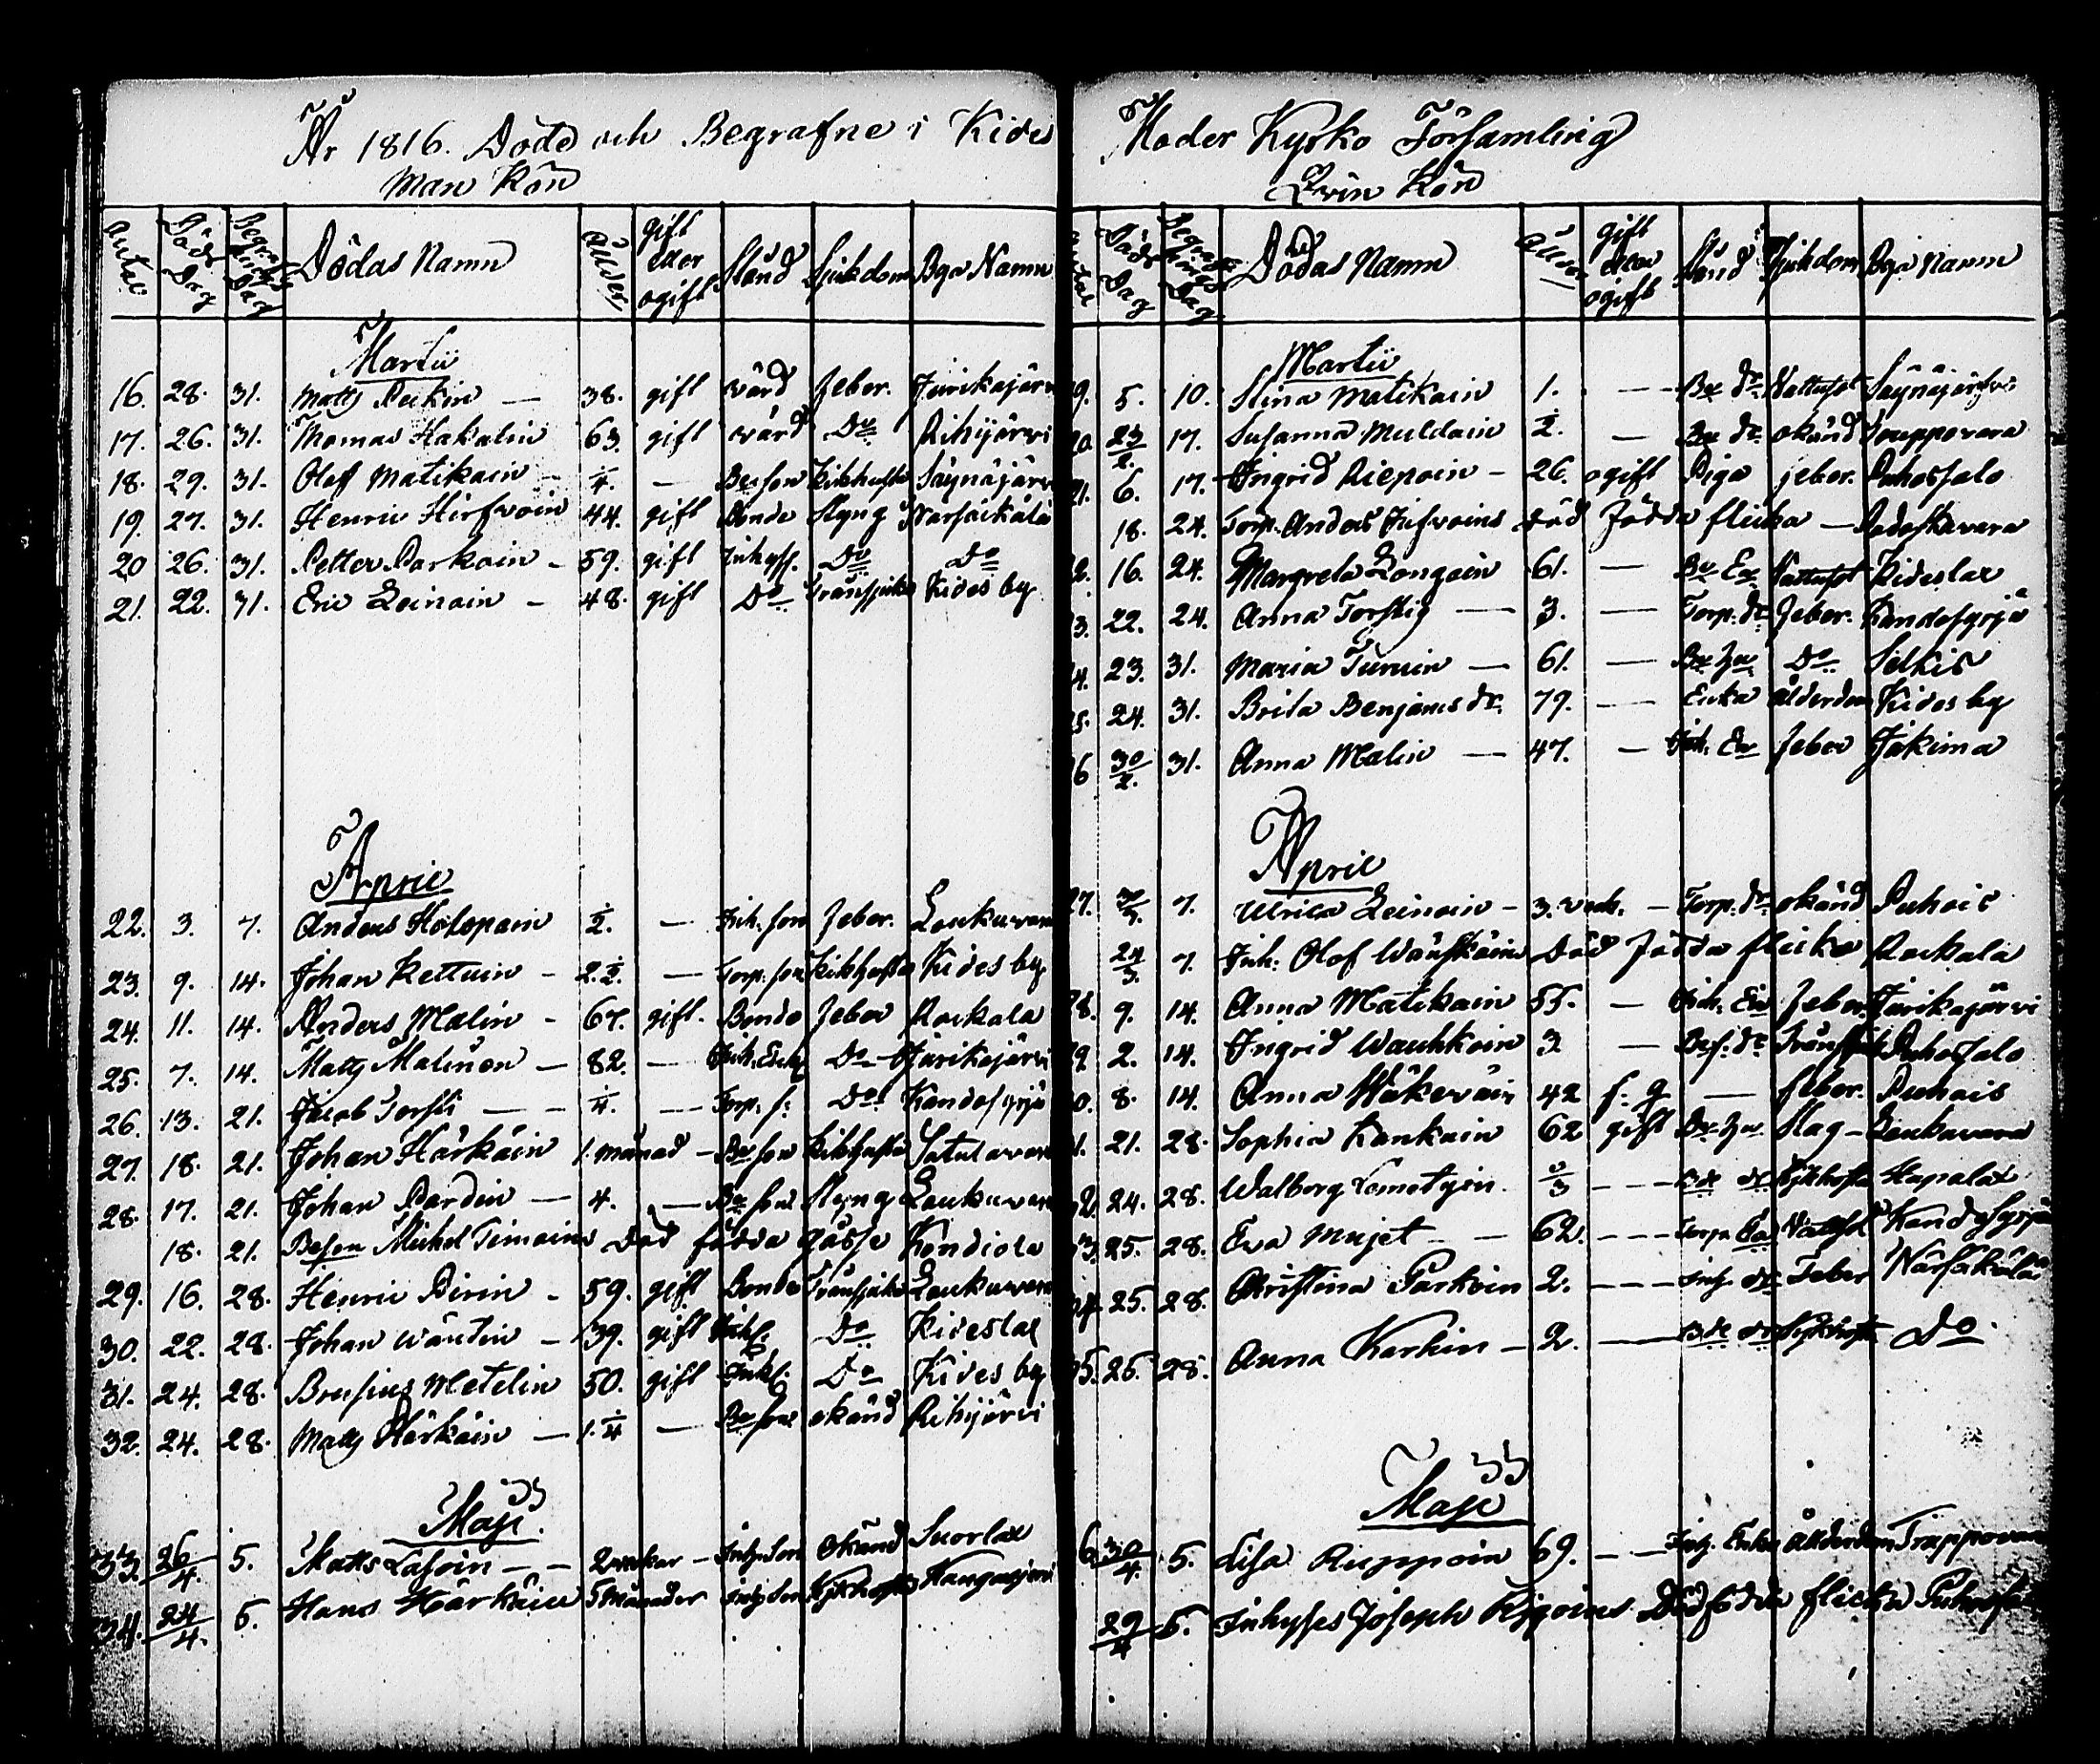 År 1816. Döde och Begrafne i Kides
Man Kön
Antal Döds Dag Begrafnings Dag Dödas Namn Ålder gift eller ogift Stånd Sjukdom Bya Namn
Martii
16. 28. 31. Matts Pekin — 38. gift värd feber. Juurikajärvi
17. 26. 31. Thomas Hakulin 63. gift värd Do Rihijärvi
18. 29. 31. Olof Matikain — 1/4. — Be son Kikhosta Säynäjärvi
19. 27. 31. Henric Hirfvoin 44. gift Bonde Styng Närsäkälä
20 26. 31. Petter Parkoin - 59. gift Inhyss. Do Do
21. 22. 31. Eric Leinoin - 48. gift Do Trånsjuka Kides by
April
22. 3. 7. Anders Holopain 1/2. — Inh. son feber. Loukuvara
23. 9. 14. Johan Kettuin - 2.1/2. — Torp. son Kikhosta Kides by
24. 11. 14. Anders Malin - 67. gift. Bonde feber Rockala
25. 7. 14. Matts Malinen — 82. — Inh. Enkl Do Juurikajärvi
26. 13. 21. Jacob Torsti — — 1/4. — Torp. s: Do Kandosyrjä
27. 18. 21. Johan Härkäin 1. månad — Be son Kikhosta Satulavara
28. 17. 21. Johan Pardin — 4. — Be son Styng Loukuvara
18. 21. Be son Michel Timoins död födda gåsse Kondiola
29. 16. 28. Henric Pirin - 59. gift Bonde Trånsjuka Loukuvara
30. 22. 28. Johan Wäntin — 39. gift Inhs. Do Kideslax
31. 24. 28. Brusius Metelin 50. gift Inhs. Do Kides by
32. 24. 28. Matts Härkäin — 1.1/4 — Be son okänd Rihijärvi
Maji.
33. 26/4. 5. Matts Lasoin — — 2 weckor — Inh. son Okänd Suorlax
34. 24/4. 5. Hans Härkäin 5 månader Inh. son Kikhosta Kangasjärvi
Moder Kyrko Församling
Qvin Kön
Antal Döds Dag Begrafnings Dag Dödas Namn Ålder gift eller ogift Stånd Sjukdom Bya namn
Martii
9. 5. 10. Stina Matikain 1. — Be dr Vattusot Säynäjärfvi
20. 23/2. 17. Susanna Muldain 1/2. — Be dr okänd Touppovara
21. 6. 17. Ingrid Riepoin - 26. ogift Piga feber. Puhossalo
18. 24. Torp. Anders Jufvoins död födda flicka — Podoskavara
2. 16. 24. Margreta Longain 61. — Be En Vattusot Kideslax
3. 22. 24. Anna Torstig — 3. — Torp. dr feber. Kandosyrjä
4. 23. 31. Maria Turuin — 61. — Be hu Do Selkis
5. 24. 31. Brita Benjamsdr. 79. — Enka ålderdom Kides by
6 30/2. 31. Anna Malin — 47. — Inh. En feber Jakima
April
27. 3/4. 7. Ulrica Leinoin - 3. veck. — Torp. dr okänd Puhois
24/3. 7. Inh. Olof Wänskäins död födda flicka Rockala
28. 9. 14. Anna Matikain 55. — Inh. En feber. Juurikajärvi
29 2. 14. Ingrid Wauhkoin 3 — Bes. dr Trånsjuk Puhossalo
0. 8. 14. Anna Häkeväin 42 f. q — feber. Puhois
1. 21. 28. Sophia Kankuin 62 gift Be hu Slag — Loukuvara
2. 24. 28. Walborg Lometyin. 2/3 — — Be dr Kikhosta Hapalax
3. 25. 28. Eva Mujet — — 62. — — Torp. En Vattusot Kandosyrjä
34. 25. 28. Christina Parkoin 2. — — Inh. dr Feber Närsäkälä
35. 25. 28. Anna Karhin — 2. — Be dr Kikhosta Do.
Maji
6 30/4. 5. Lisa Ruppoin 69. — — Inh. Enka Ålderdom Trappovara
29/4 5. Inhyses Joseph Rijpoins Död födda flicka Puhossalo